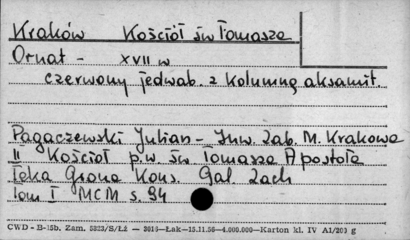 Kraków Kościół św Tomasza
Ornat - XVII w
czerwony jedwab. z kolumną aksamit.
Pagaczewski Julian - Inw. Zab. M. Krakowa
II Kościoł p.w św. Tomasza Apostoła
Teka Grona Kons. Gal Zach
Tom I MCM s. 94
CWD - B-15b. Zam. 5823/S/Łż - 2019-Łak-15.11.55-4.000.000-Karton kl. IV A1/200 g